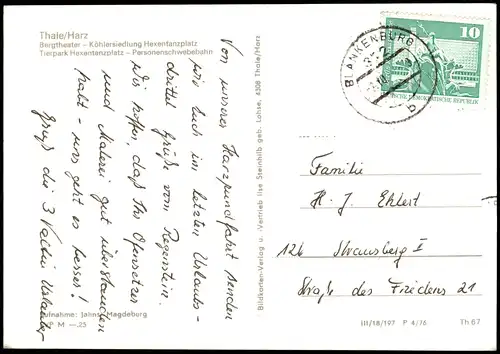 Thale/Harz
Bergtheater – Köhlersiedlung Hexentanzplatz
Tierpark Hexentanzplatz – Personenschwebebahn
Von unserer Harzrundfahrt senden
wir Euch im letzten Urlaubs-
drittel Grüße vom Regenstein.
Wir hoffen, daß Ihr Ofensetzer
und Malerei gut überstanden
habt – uns geht es besser!
Gruß die 3
Aufnahme: Jahn, Magdeburg
M —,25
Bildkarten-Verlag u. -Vertrieb Ilse Steinhilb geb. Lohse, 4308 Thale/Harz
BLANKENBURG
b
10
DEUTSCHE DEMOKRATISCHE REPUBLIK
Familie
H. J. Ehlert
126 Strausberg II
Straße des Friedens 21
III/18/197 P 4/76 Th 67